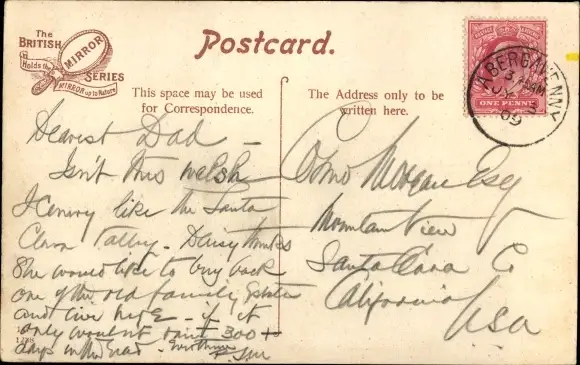 The
BRITISH
Holds the
MIRROR
SERIES
MIRROR up to Nature
Postcard.
POSTAGE REVENUE
ONE PENNY
ABERGAVENNY
09
This space may be used
for Correspondence.
The Address only to be
written here.
Dearest Dad —
Isn't this Welsh
Scenery like the Santa
Clara Valley - Daisy thinks
She would like to buy back
one of the old family Estates
and live here - if it
only wouldn't rain 300 +
days in the year -
Como Morgan Esq
Mountain View
Santa Clara Co
California
USA